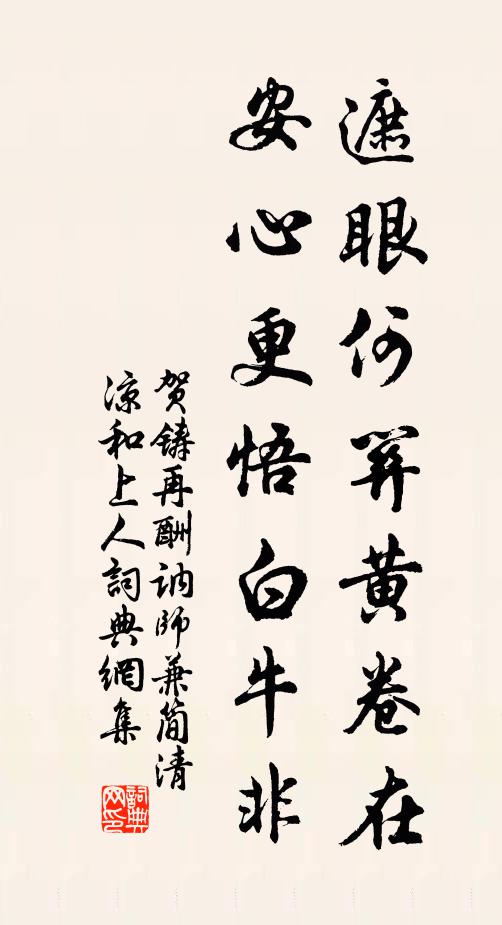 遮眼何黄卷在
安心更悟白牛非
贺鑄再酬訥師兼简清
涼和上人詞典網集
詞典
网印